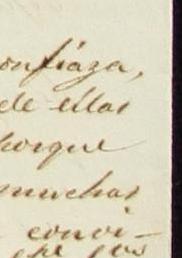 onfiaza,
de ellas
porque
muchas
convi-
los